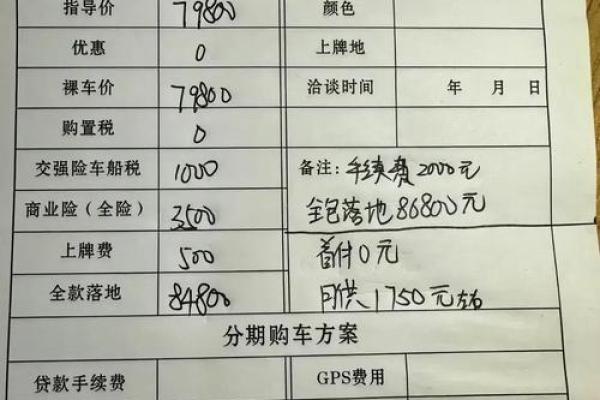 指导价 79800 颜色
优惠 0 上牌地
裸车价 79800 洽谈时间 年 月 日
购置税 0
交强险车船税 1000 备注: 手续费2000元
商业险（全险） 3500 全包落地86800元
上牌费 500 首付0元
全款落地 84800 月供1750元左右
分期购车方案
贷款手续费 GPS费用